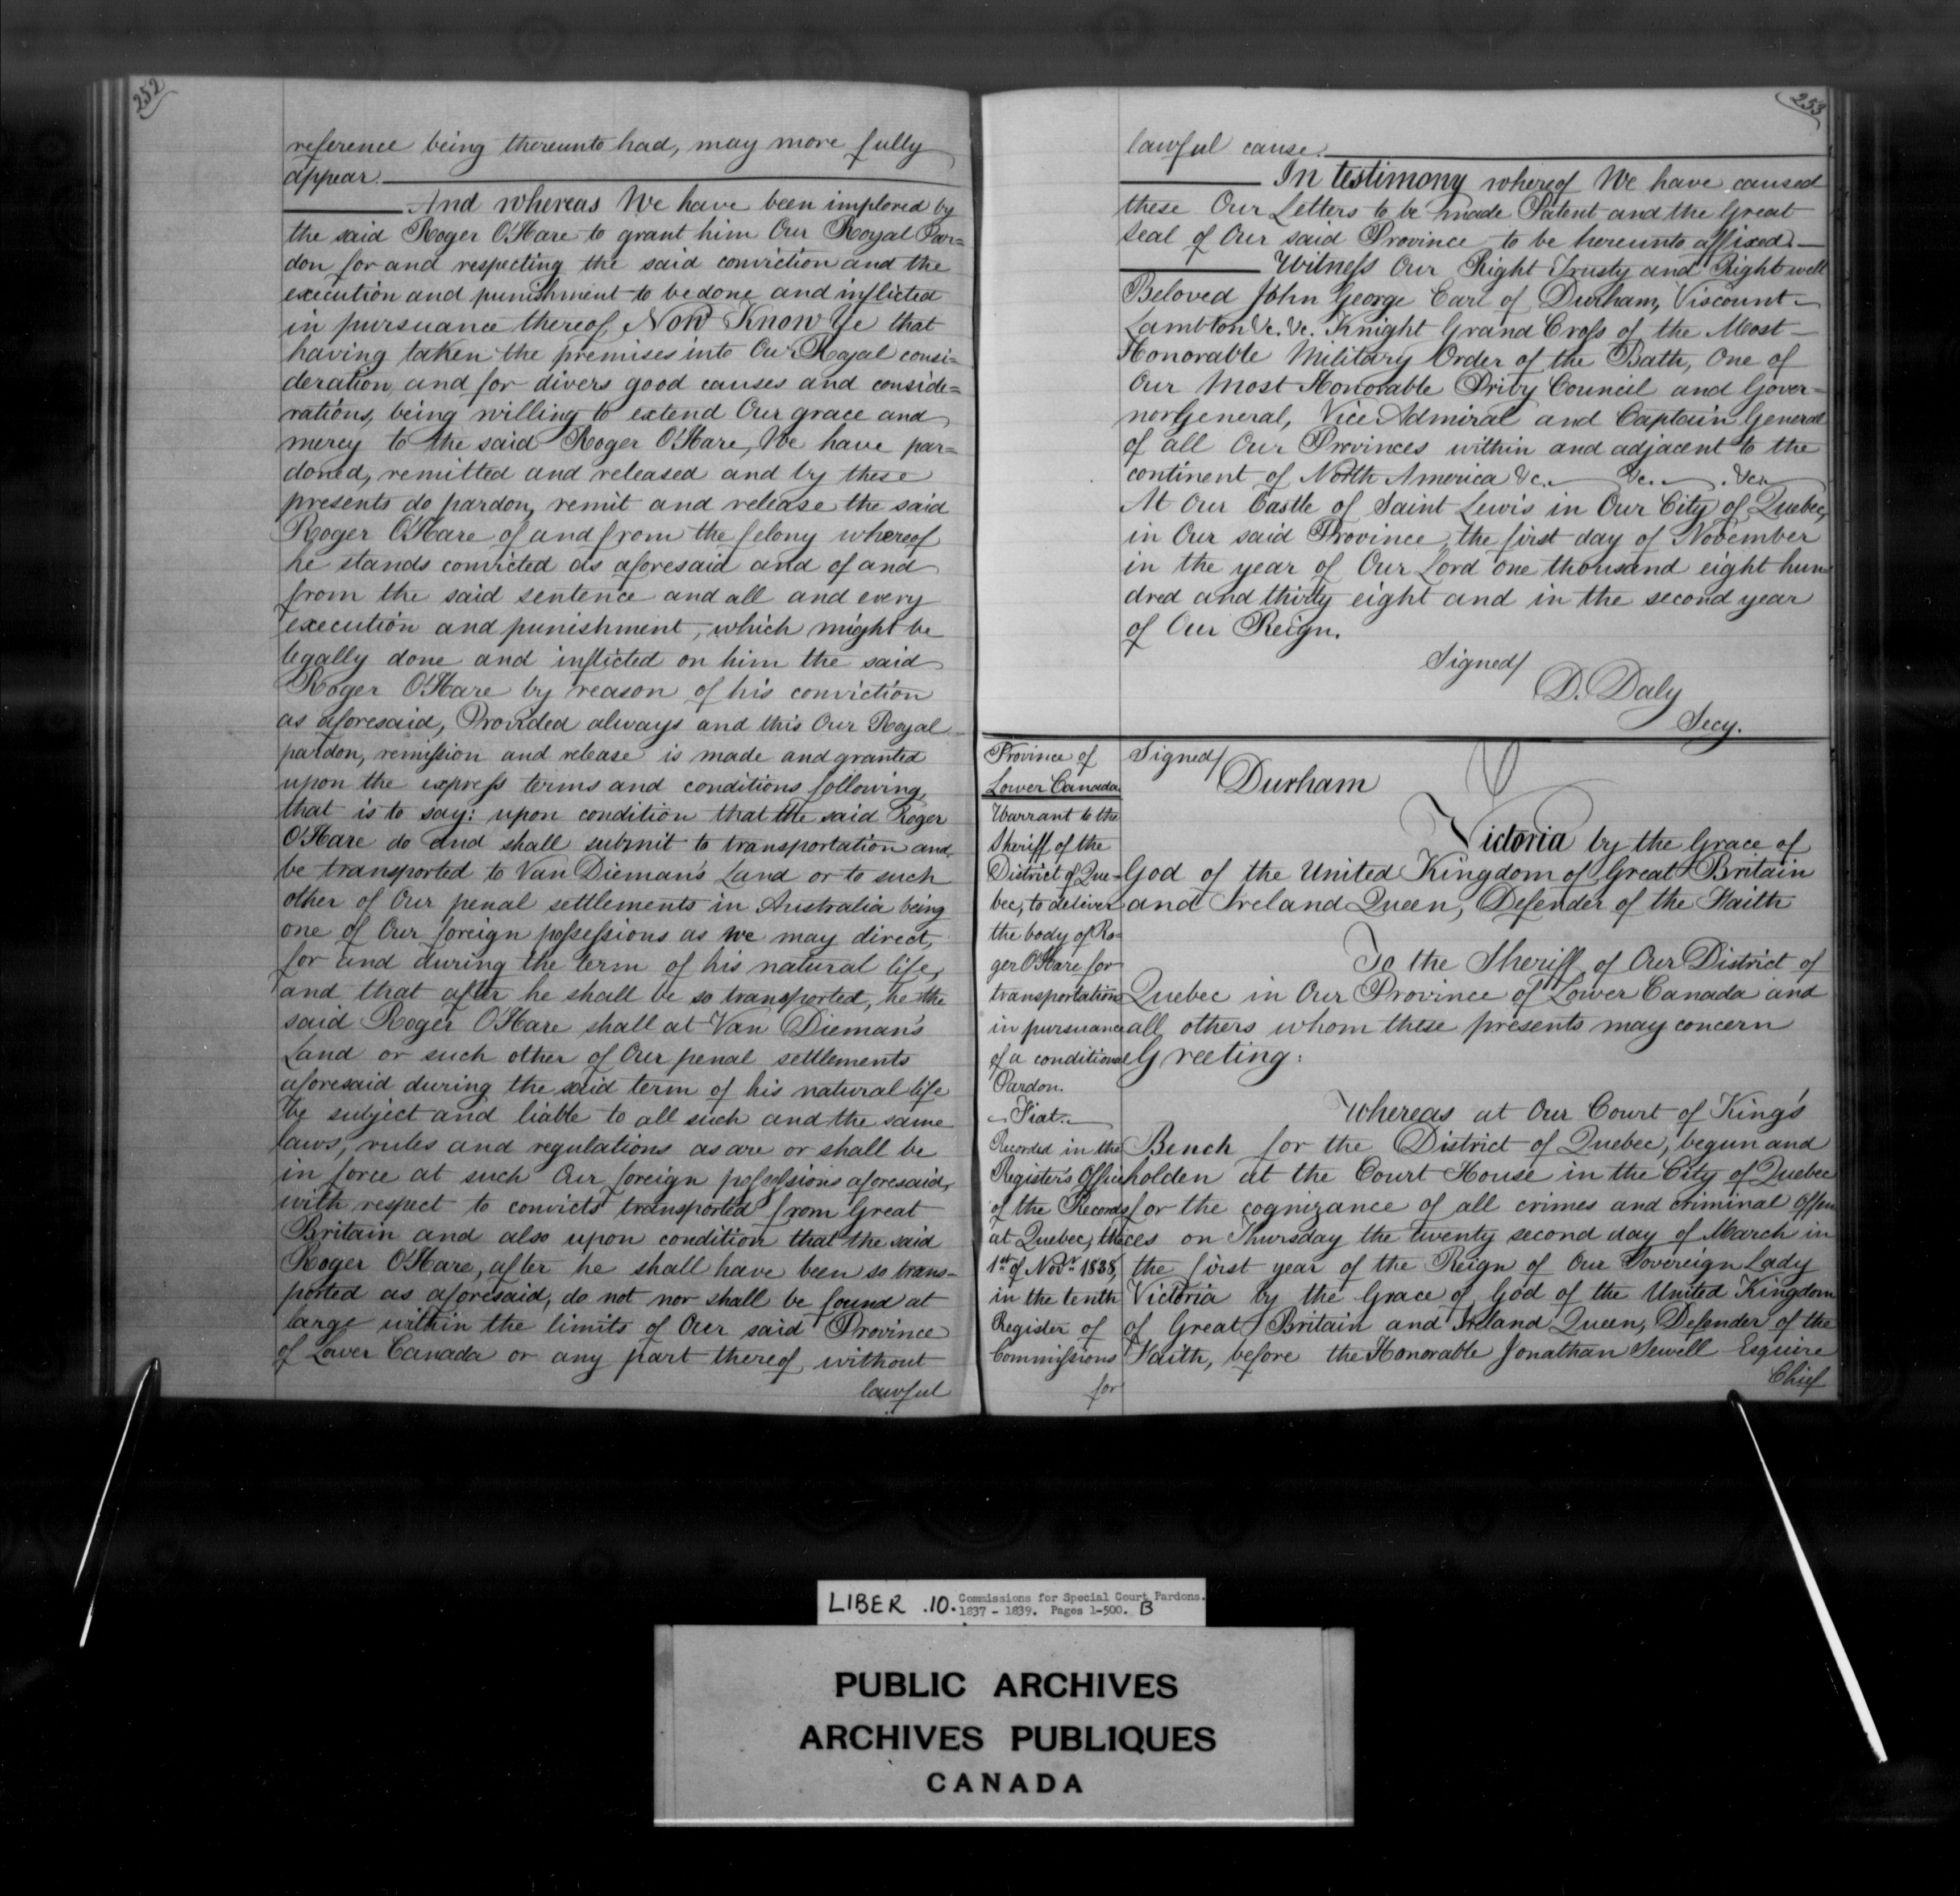 252
reference being thereunto had, may more fully
appear.
And whereas We have been implored by
the said Roger O'Hare to grant him Our Royal Par=
don for and respecting the said conviction and the
execution and punishment to be done and inflicted
in pursuance thereof, Now Know Ye that
having taken the premises into Our Royal consi=
deration, and for divers good causes and conside=
rations, being willing to extend Our grace and
mercy to the said Roger O'Hare, We have par=
doned, remitted and released and by these
presents do pardon, remit and release the said
Roger O'Hare of and from the felony whereof
he stands convicted as aforesaid and of and
from the said sentence and all and every
execution and punishment, which might be
legally done and inflicted on him the said
Roger O'Hare by reason of his conviction
as aforesaid, Provided always and this Our Royal
pardon, remission and release is made and granted
upon the express terms and conditions following,
that is to say: upon condition that the said Roger
O'Hare do and shall submit to transportation and
be transported to Van Dieman's Land or to such
other of Our penal settlements in Australia being
one of Our foreign possessions as we may direct,
for and during the term of his natural life,
and that after he shall be so transported, he the
said Roger O'Hare shall at Van Dieman's
Land or such other of Our penal settlements
aforesaid during the said term of his natural life
be subject and liable to all such and the same
laws, rules and regulations as are or shall be
in force at such Our foreign possessions aforesaid,
with respect to convicts transported from Great
Britain and also upon condition that the said
Roger O'Hare, after he shall have been so trans-
ported as aforesaid, do not nor shall be found at
large within the limits of Our said Province
of Lower Canada or any part thereof, without
lawful
253
lawful cause.
In testimony whereof We have caused
these Our Letters to be made Patent and the Great
Seal of Our said Province to be hereunto affixed.
Witness Our Right Trusty and Right well
Beloved John George Earl of Durham, Viscount
Lambton &c. &c. Knight Grand Cross of the Most
Honorable Military Order of the Bath, One of
Our Most Honorable Privy Council and Gover=
nor General, Vice Admiral and Captain General
of all Our Provinces within and adjacent to the
continent of North America &c. &c. &c.
At Our Castle of Saint Lewis in Our City of Quebec,
in Our said Province, the first day of November
in the year of Our Lord one thousand eight hun=
dred and thirty eight and in the second year
of Our Reign.
Signed/
D. Daly
Secy.
Province of
Lower Canada
Warrant to the
Sheriff of the
District of Que-
bec, to deliver
the body of Ro=
ger O'Hare for
transportation
in pursuance
of a conditional
Pardon.
Fiat.
Recorded in the
Register's Office
of the Records
at Quebec, the
1st of Novr. 1838,
in the tenth
Register of
Commissions
for
Signed/
Durham
Victoria by the Grace of
God of the United Kingdom of Great Britain
and Ireland Queen, Defender of the Faith
To the Sheriff of Our District of
Quebec in Our Province of Lower Canada and
all others whom these presents may concern
Greeting:
Whereas at Our Court of King's
Bench for the District of Quebec, begun and
holden at the Court House in the City of Quebec
for the cognizance of all crimes and criminal offen
ces on Thursday the twenty second day of March in
the first year of the Reign of Our Sovereign Lady
Victoria by the Grace of God of the United Kingdom
of Great Britain and Ireland Queen, Defender of the
Faith, before the Honorable Jonathan Sewell Esquire
Chief
LIBER .10. Commissions for Special Court Pardons.
1837 - 1839. Pages 1-500. B
PUBLIC ARCHIVES
ARCHIVES PUBLIQUES
CANADA